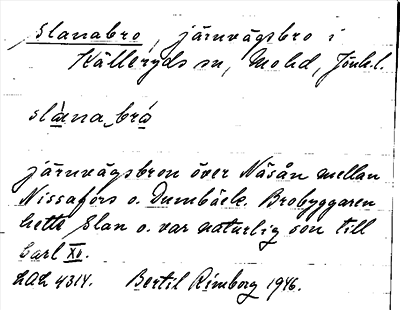 Slanabro, järnvägsbro i
Källeryds sn, Mohd, Jönk. l.
slàna brá
järnvägsbron över Näsån mellan
Nissafors o. Dumbäcke. Brobyggaren
hette Slan o. var naturlig son till
Carl XV.
LAL 4314. Bertil Rimborg 1946.